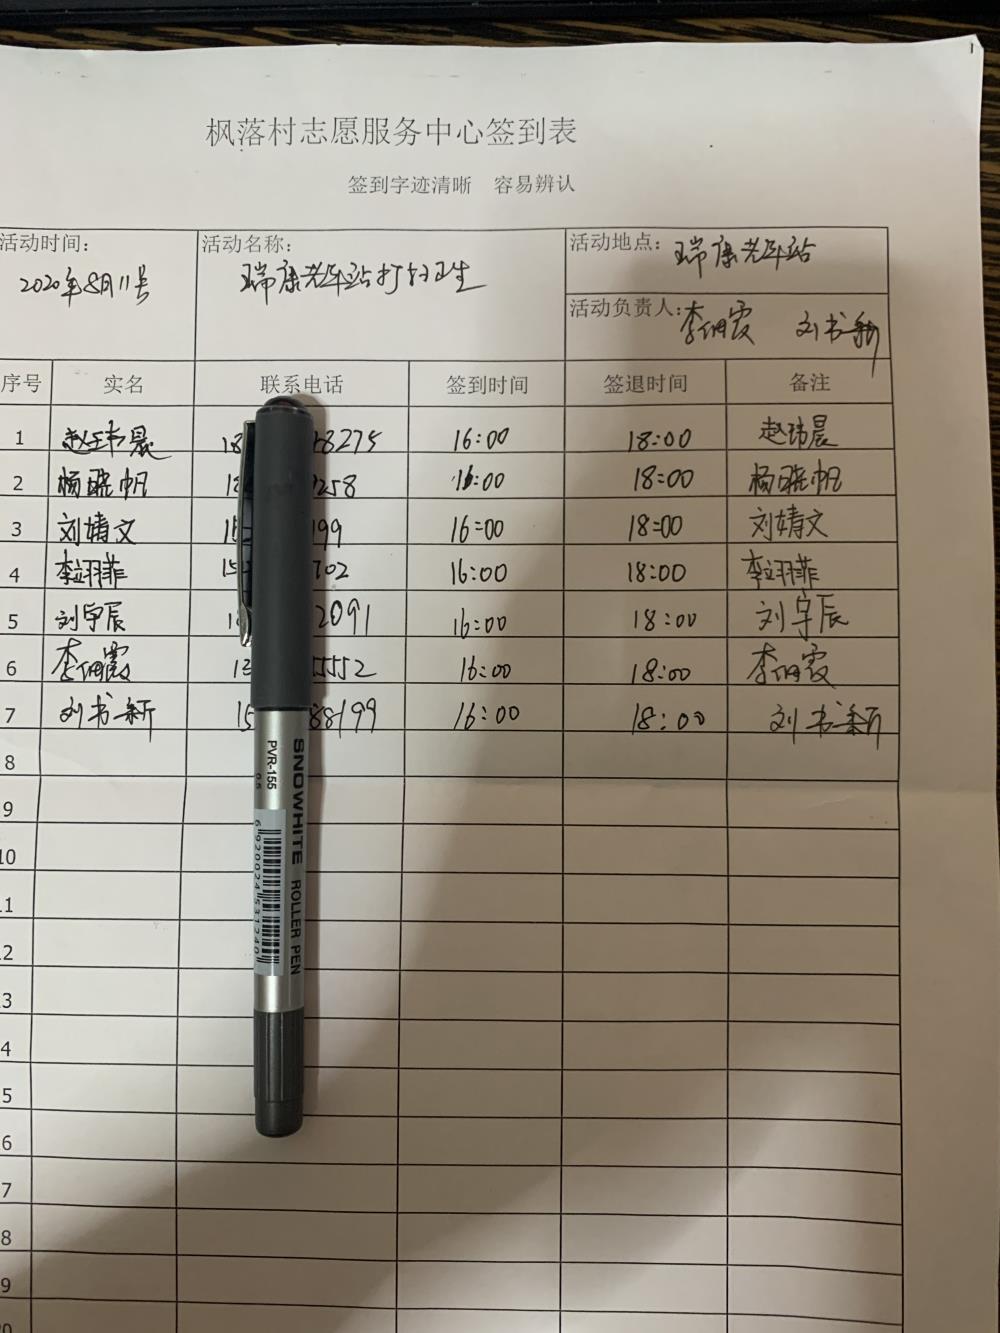 枫落村志愿服务中心签到表
签到字迹清晰 容易辨认
活动时间: 活动名称: 活动地点: 瑞康老年站
2020年8月11号 瑞康老年站打扫卫生
活动负责人: 李佃霞 刘书新
序号 实名 联系电话 签到时间 签退时间 备注
1 赵玮晨 18 8275 16:00 18:00 赵玮晨
2 杨晓帆 18 258 16:00 18:00 杨晓帆
3 刘婧文 15 199 16:00 18:00 刘婧文
4 李翊菲 15 702 16:00 18:00 李翊菲
5 刘宇辰 2091 16:00 18:00 刘宇辰
6 李佃霞 13 5552 16:00 18:00 李佃霞
7 刘书新 15 88199 16:00 18:00 刘书新
8
9
10
1
2
3
4
5
6
7
8
9
SNOWHITE ROLLER PEN
PVR-155 0.5
6920024531240